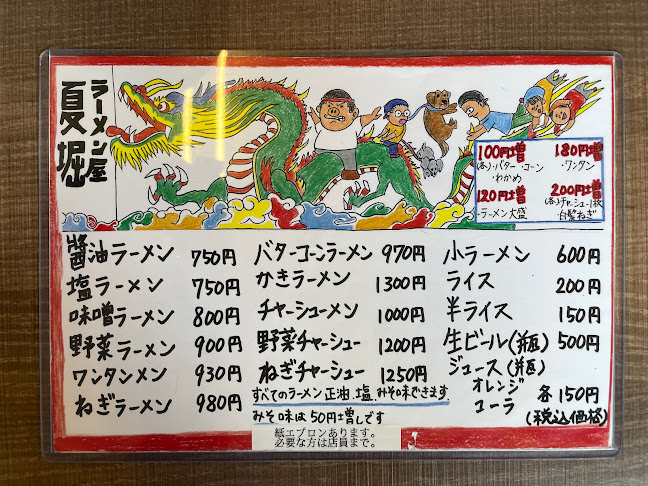 ラーメン屋
夏堀
100円増
(各)・バター・コーン
・わかめ
180円増
・ワンタン
120円増
・ラーメン大盛
200円増
(各)チャーシュー1枚
・白髪ねぎ
醤油ラーメン 750円
塩ラーメン 750円
味噌ラーメン 800円
野菜ラーメン 900円
ワンタンメン 930円
ねぎラーメン 980円
バターコーンラーメン 970円
かきラーメン 1300円
チャーシューメン 1000円
野菜チャーシュー 1200円
ねぎチャーシュー 1250円
すべてのラーメン正油、塩、みそ味できます
みそ味は50円増しです
小ラーメン 600円
ライス 200円
半ライス 150円
生ビール(瓶) 500円
ジュース(瓶)
オレンジ
コーラ
各150円
(税込価格)
紙エプロンあります。
必要な方は店員まで。